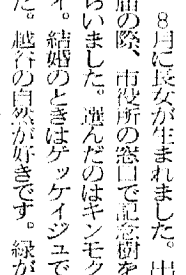 8月に長女が生まれました。出
届の際、市役所の窓口で記念樹を
らいました。選んだのはキンモク
イ。結婚のときはゲッケイジュで
た。越谷の自然が好きです。緑が